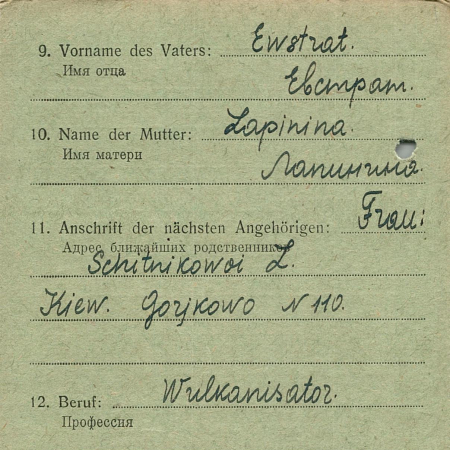 9. Vorname des Vaters: Ewstrat.
Имя отца
Евстрат.
10. Name der Mutter: Lapinina.
Имя матери
Лапинина.
11. Anschrift der nächsten Angehörigen: Frau:
Адрес ближайших родственников
Schitnikowoi L.
Kiew. Gorjkowo N 110.
12. Beruf: Wulkanisator.
Профессия